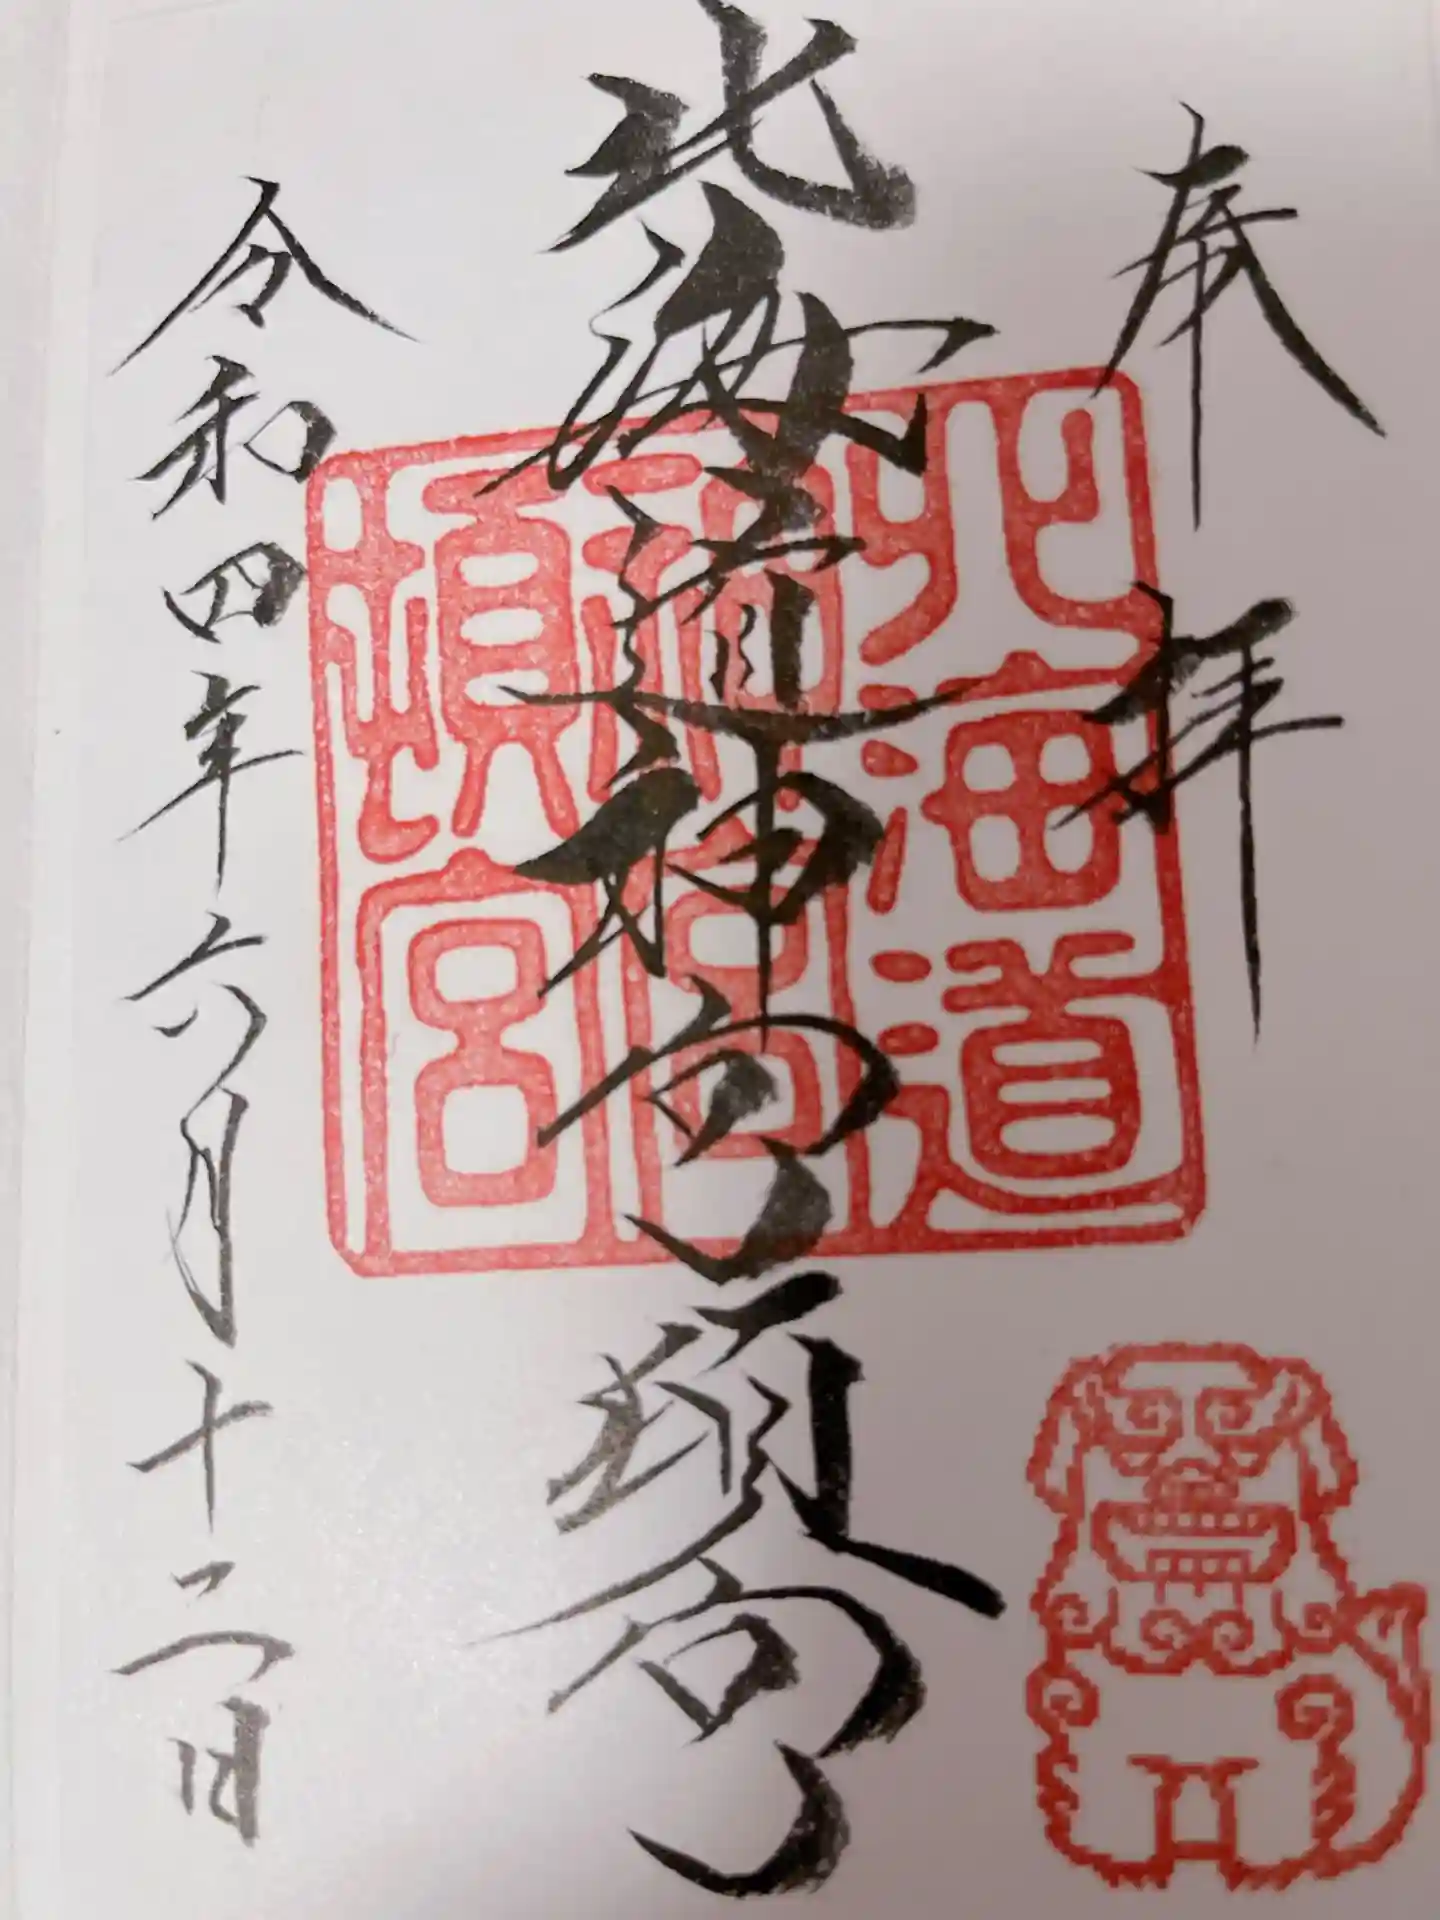 奉拝
北海道神宮頓宮
令和四年六月十二日
北海道
神宮
頓宮